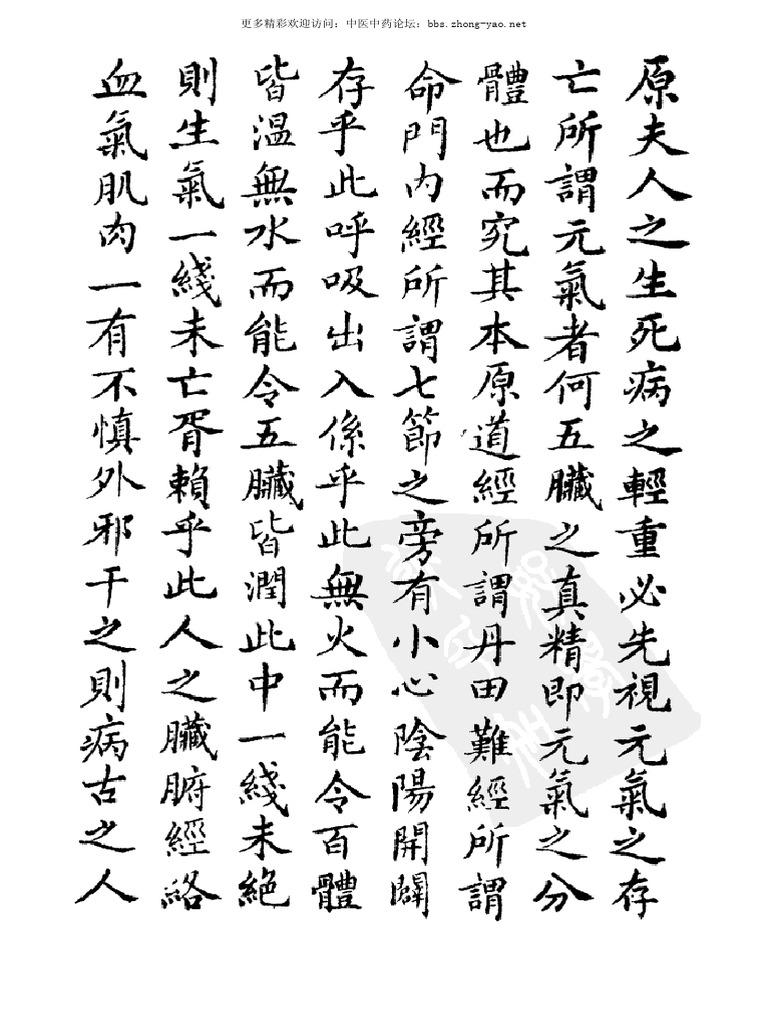 更多精彩欢迎访问：中医中药论坛：bbs.zhong-yao.net
原夫人之生死病之輕重必先視元氣之存
亡所謂元氣者何五臟之真精即元氣之分
體也而究其本原道經所謂丹田難經所謂
命門内經所謂七節之旁有小心陰陽開闢
存乎此呼吸出入係乎此無火而能令百體
皆温無水而能令五臟皆潤此中一綫未絶
則生氣一綫未亡胥賴乎此人之臟腑經絡
血氣肌肉一有不慎外邪干之則病古之人